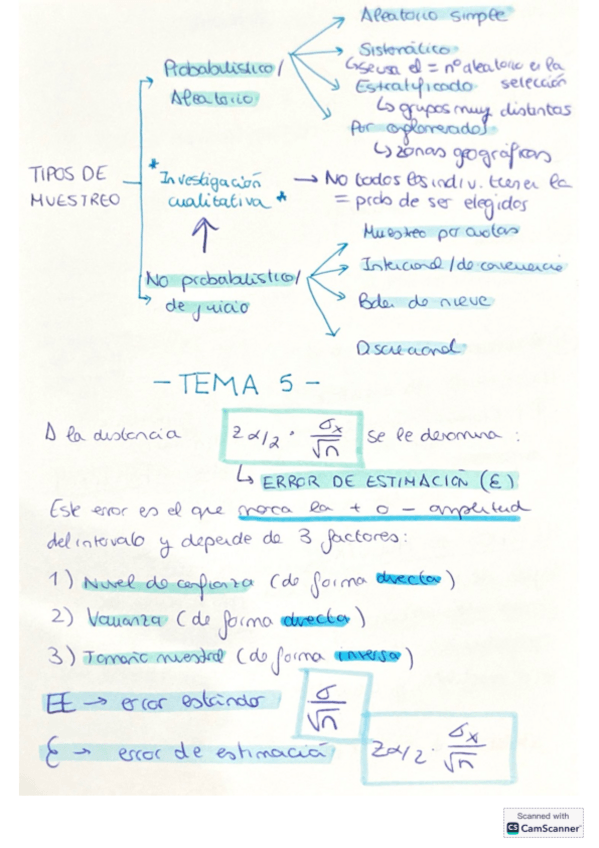 Aleatorio simple
Sistemático
Probabilístico/
↳ se usa el = nº aleatorio en la selección
Aleatorio
Estratificado
↳ grupos muy distintos
Por conglomerados
↳ zonas geográficas
TIPOS DE MUESTREO
* Investigación cualitativa *
→ No todos los indiv. tienen la
= prob de ser elegidos
Muestreo por cuotas
No probabilístico/
Intencional / de conveniencia
de juicio
Bola de nieve
Discrecional
- TEMA 5 -
A la distancia Zα/2 · σx/√n se le denomina :
↳ ERROR DE ESTIMACIÓN (ε)
Este error es el que marca la + o - amplitud
del intervalo y depende de 3 factores:
1) Nivel de confianza (de forma directa)
2) Varianza (de forma directa)
3) Tamaño muestral (de forma inversa)
EE → error estándar σ/√n
ε → error de estimación Zα/2 · σx/√n
Scanned with
CS CamScanner